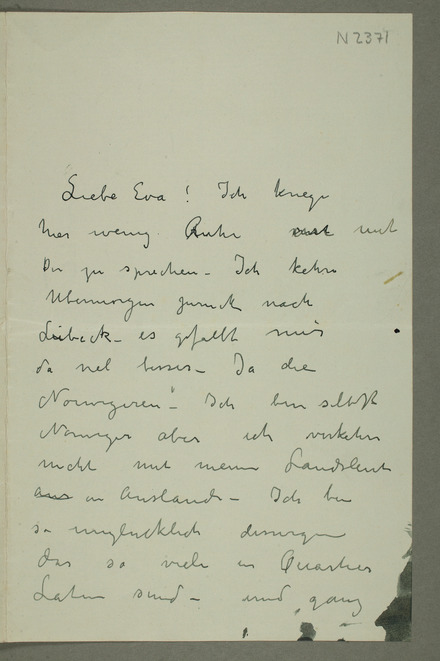 N 2371
Liebe Eva! Ich kriege
hier wenig Ruhe mit
Dir zu sprechen – Ich kehre
Ubermorgen zuruck nach
Lübeck – es gefallt mir
da viel besser – Ja die
Norwegeren" – Ich bin selbst
Norweger aber ich verkehre
nicht mit meine Landsleute
aus in Auslande – Ich bin
so unglucklich deswegen
das so viele in Quartier
Latin sind – und ganz